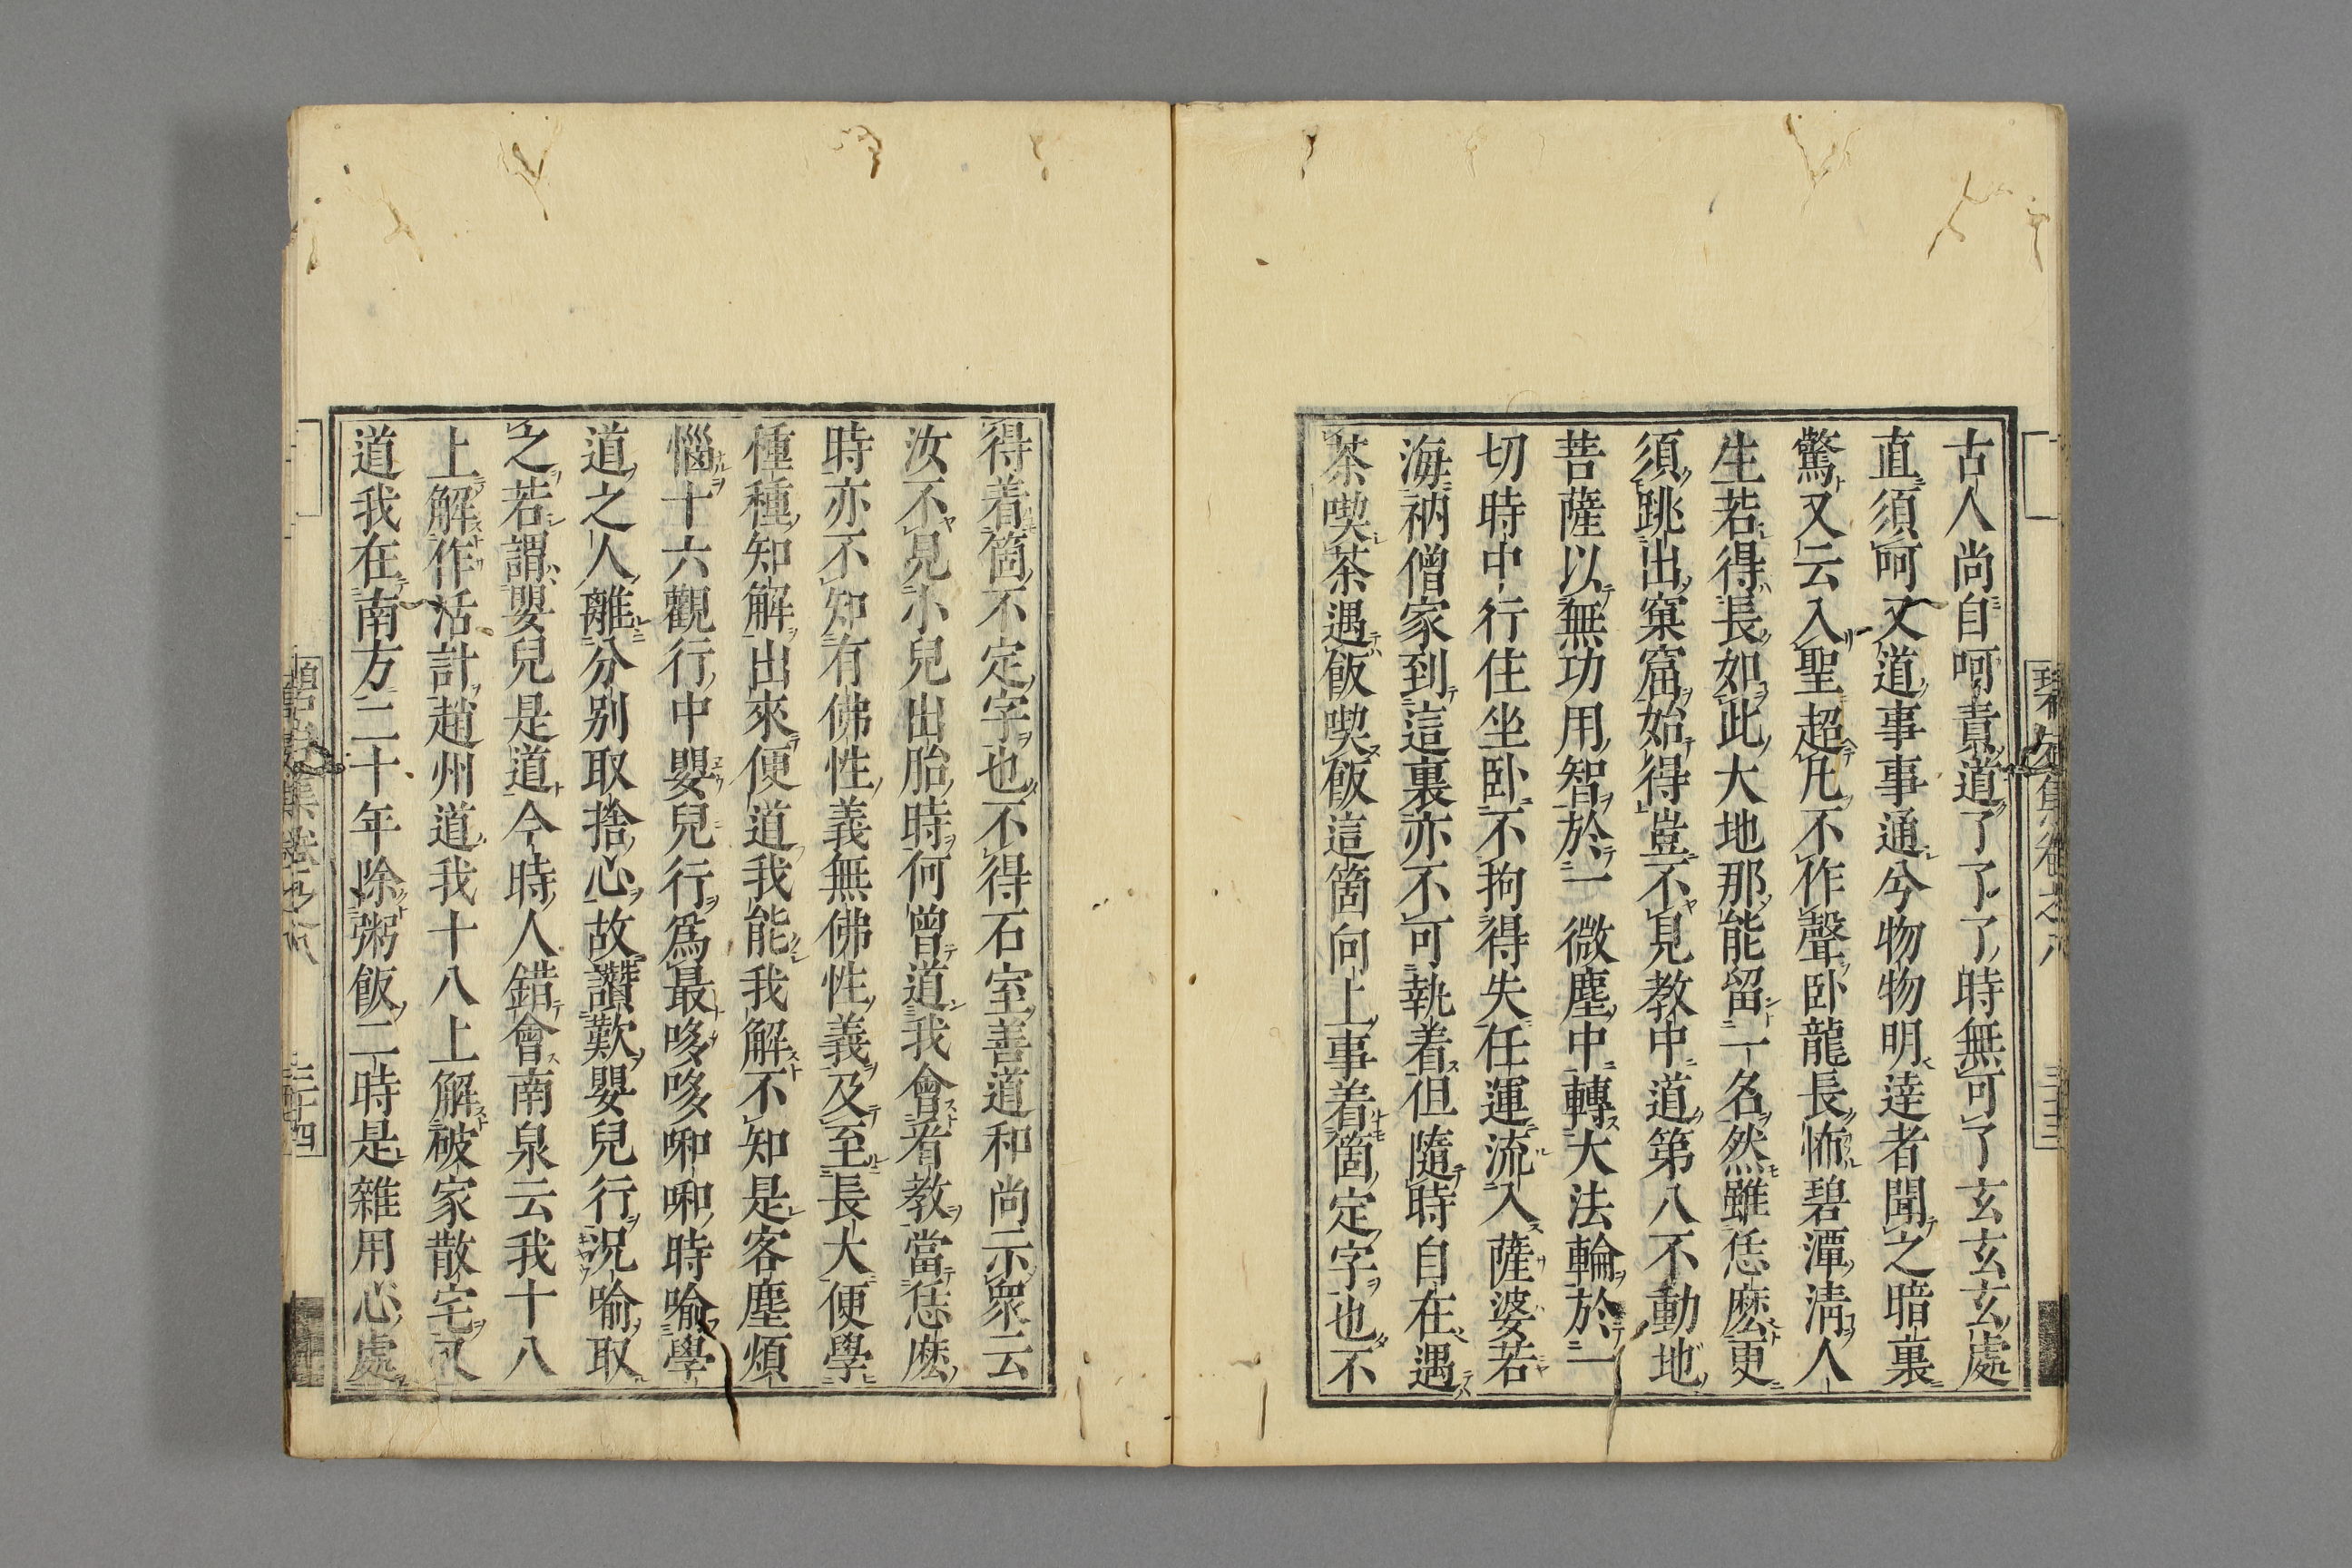 古人尚自呵責道了了了時無可了玄玄玄處
直須呵又道事事通兮物物明達者聞之暗裏
驚又云入聖超凡不作聲卧龍長怖碧潭清人
生若得長如此大地那能留一名然雖恁麽更
須跳出窠窟始得豈不見教中道第八不動地
菩薩以無功用智於一微塵中轉大法輪於一
切時中行住坐卧不拘得失任運流入薩婆若
海衲僧家到這裏亦不可執着但隨時自在遇
茶喫茶遇飯喫飯這箇向上事着箇定字也不
得着箇不定字也不得石室善道和尚示衆云
汝不見小兒出胎時何曾道我會看教當恁麽
時亦不知有佛性義無佛性義及至長大便學
種種知解出來便道我能我解不知是客塵煩
惱十六觀行中嬰兒行爲最哆哆啝啝時喻學
道之人離分別取捨心故讚歎嬰兒行況喻取
之若謂嬰兒是道今時人錯會南泉云我十八
上解作活計趙州道我十八上解破家散宅又
道我在南方二十年除粥飯二時是雜用心處